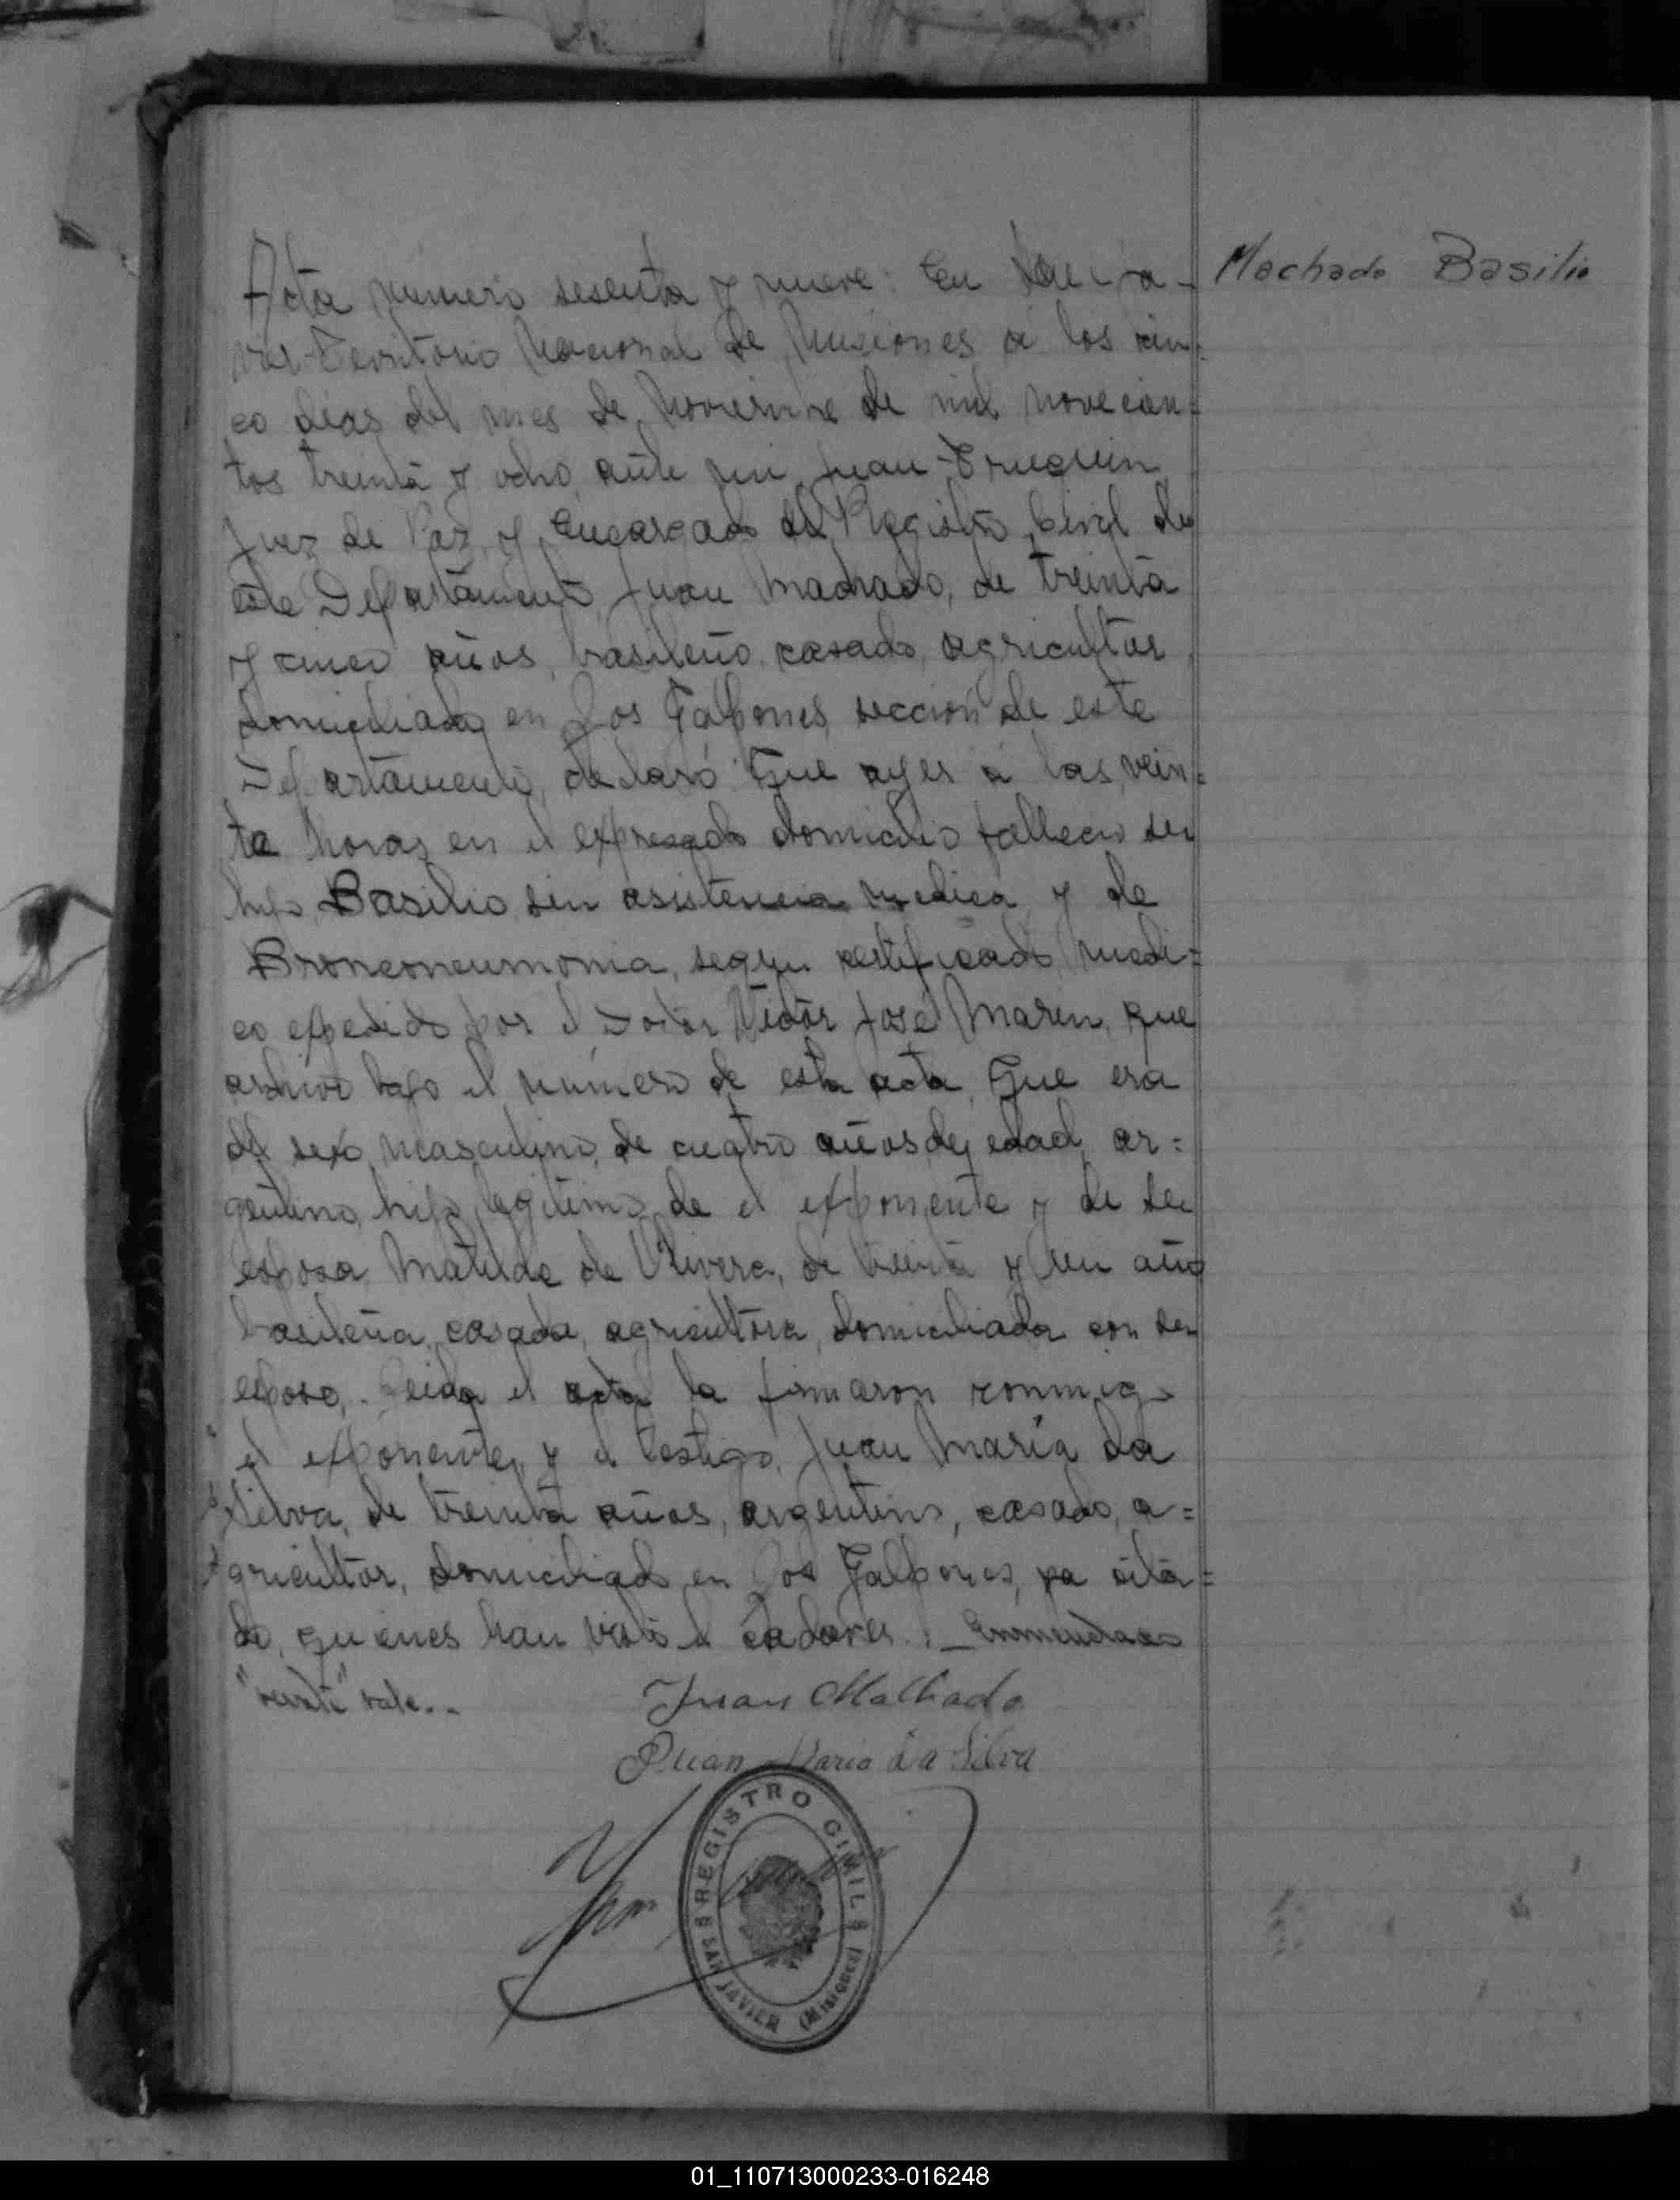 Acta número sesenta y nueve: En
Territorio Nacional de Misiones á los cin=
co dias del mes de Noviembre de mil novecien=
tos treinta y ocho, ante mi, Juan
Juez de Paz, y Encargado del Registro Civil de
este Departamento, Juan Machado, de treinta
y cinco años, brasileño, casado, agricultor
domiciliado en Los Galpones, sección de este
Departamento, declaró: Que ayer á las vein=
te horas en el expresado domicilio falleció su
hijo Basilio sin asistencia medica y de
Bronconeumonia, segun certificado medi=
co expedido por el Doctor Victor José Marin, que
archivo bajo el número de esta acta, Que era
del sexo masculino, de cuatro años de edad, ar=
gentino, hijo legitimo de el exponente y de su
esposa Matilde de Olivera, de treinta y un año
brasileña, casada, agricultora, domiciliada con su
esposo,. Leida el acta la firmaron conmigo
el exponente, y el testigo, Juan Maria da
Silva, de treinta años, argentino, casado, a=
gricultor, domiciliado en Los Galpones, ya cita=
do, quienes han visto el cadaver. _ Enmendado
" " vale..
Juan Malhado
Juan Maria da Silva
REGISTRO CIVIL
SAN JAVIER (Misiones)
Machado Basilio
01_110713000233-016248